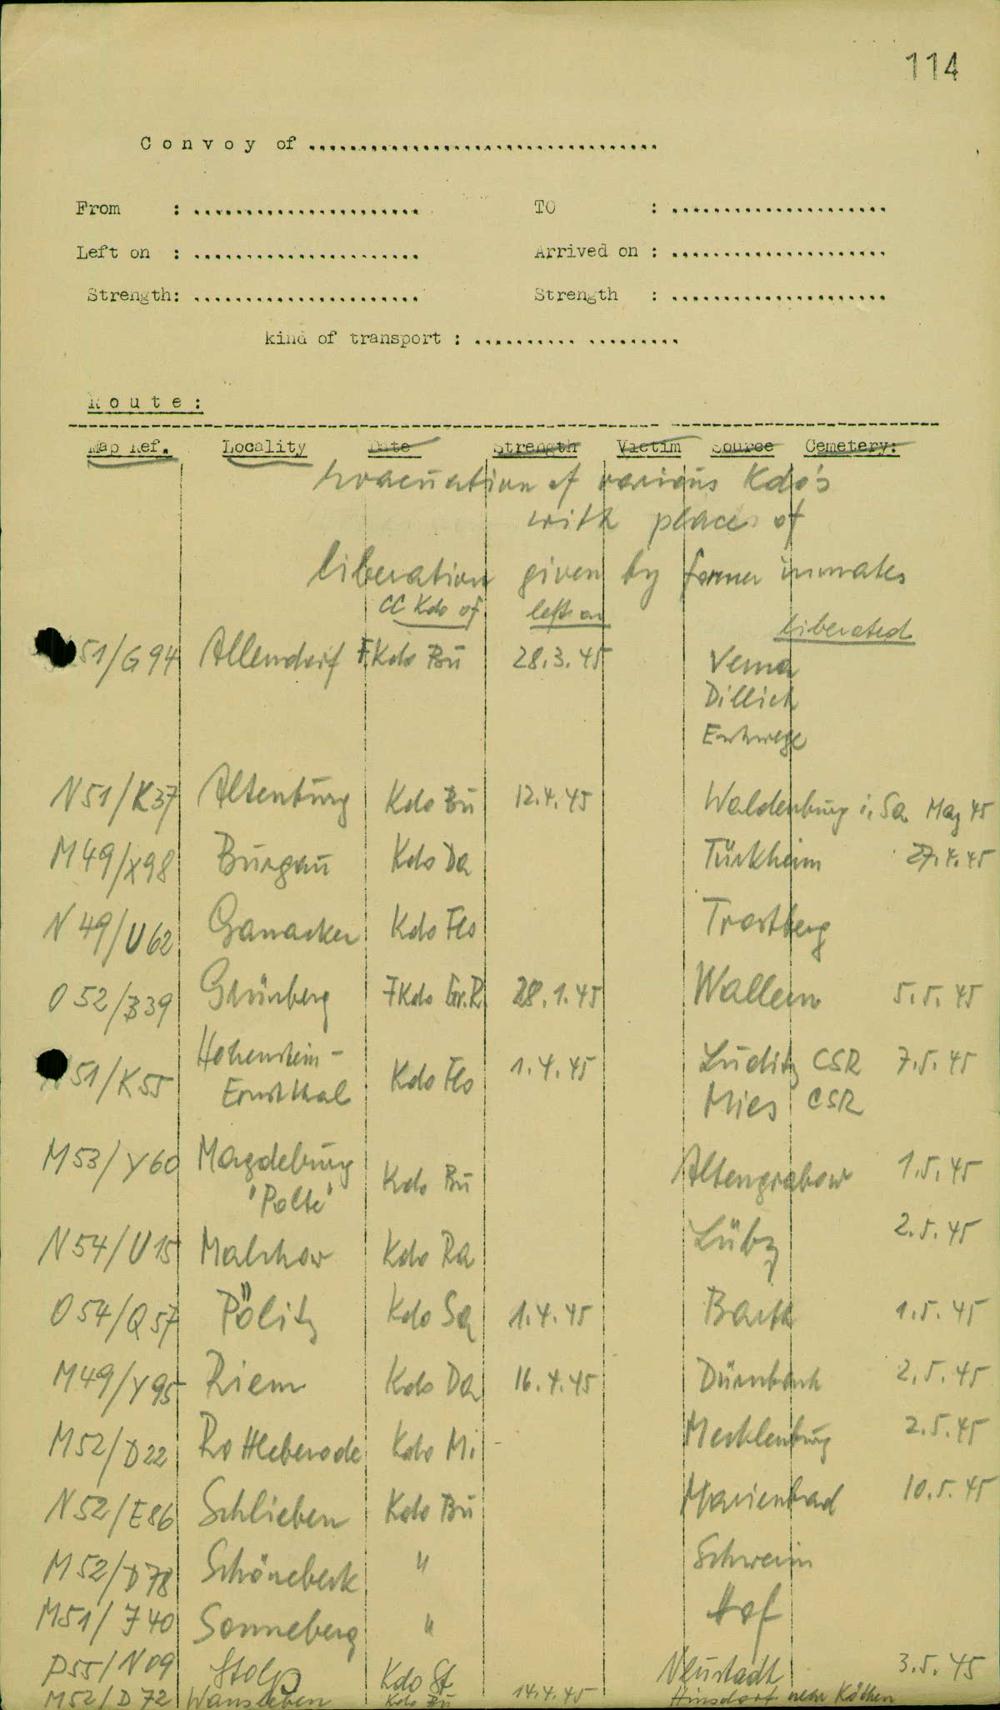 114
Convoy of ..................................
From : ...................... TO : .....................
Left on : ...................... Arrived on : .....................
Strength: ...................... Strength : .....................
kind of transport : .......... .........
Route:
Map Ref. Locality Date Strength Victim Source Cemetery:
Evacuation of various Kdo's
with places of
liberation given by former inmates
CC Kdo of left on liberated
51/G94 Allendorf F.Kdo Bu 28.3.45 Verna
Dillich
Eschwege
N51/K37 Altenburg Kdo Bu 12.4.45 Waldenburg i. Sa. May 45
M49/X98 Burgau Kdo Da Türkheim 27.4.45
N49/U62 Ganacker Kdo Flo Trostberg
O52/B39 Grünberg FKdo Gr.R. 28.1.45 Wallern 5.5.45
51/K55 Hohenstein-
Ernstthal Kdo Flo 1.4.45 Luditz CSR 7.5.45
Mies CSR
M53/Y60 Magdeburg
'Polte' Kdo Bu Altengrabow 1.5.45
N54/U15 Malchow Kdo Ra Lübz 2.5.45
O54/Q57 Pölitz Kdo Sa 1.4.45 Barth 1.5.45
M49/Y95 Riem Kdo Da 16.4.45 Dürnbach 2.5.45
M52/D22 Rottleberode Kdo Mi Mecklenburg 2.5.45
N52/E86 Schlieben Kdo Bu Marienbad 10.5.45
M52/D78 Schönebeck " Schwerin
M51/J40 Sonneberg " Hof
P55/N09 Stolp Kdo St Neustadt 3.5.45
M52/D72 Wansleben Kdo Bu 14.4.45 Hinsdorf near Köthen